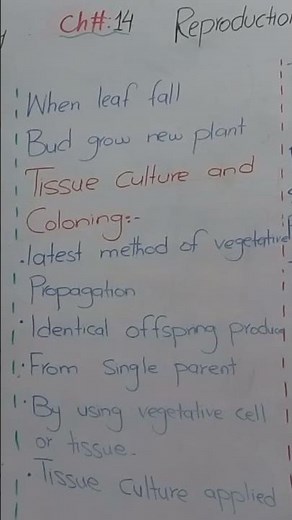 Ch#:14 Reproductio
When leaf fall
Bud grow new plant
Tissue Culture and
Coloning:-
.latest method of vegetative
Propagation
• Identical offspring produc
• From Single parent
• By using vegetative cell
or tissue.
• Tissue Culture applied